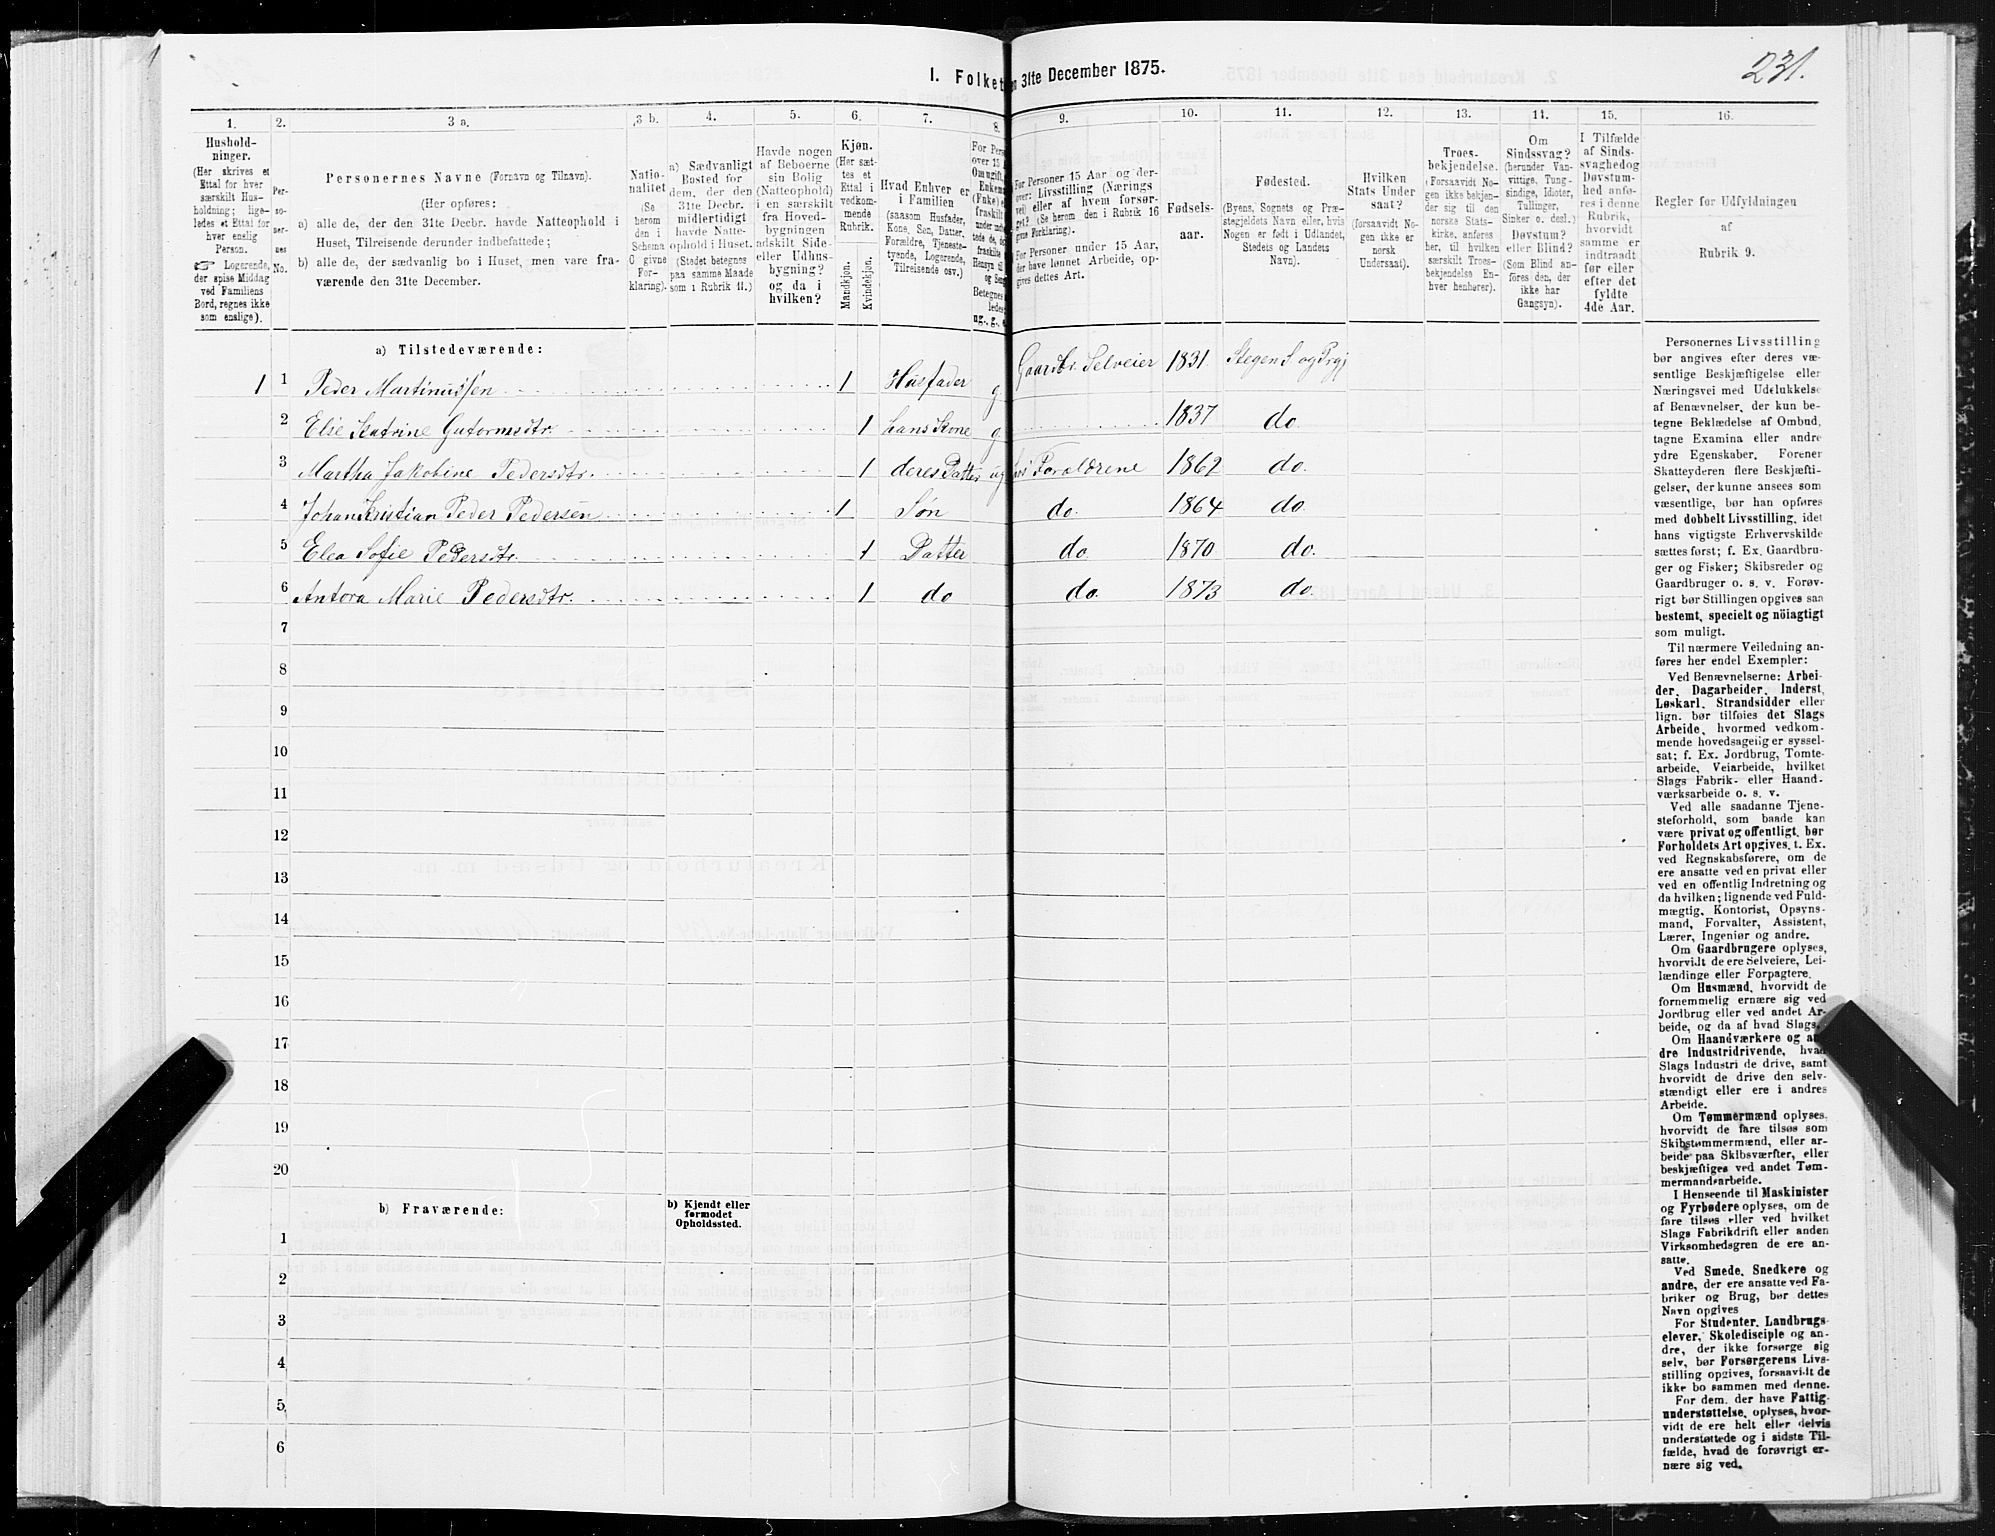 231.
1. Folket en 31te December 1875.
1. 2. 3 a. 3 b. 4. 5. 6. 7. 8. 9. 10. 11. 12. 13. 14. 15. 16.
Hushold-
ninger.
(Her skrives et
Ettal for hver
særskilt Hus-
holdning; lige-
ledes et Ettal for
hver enslig
Person.
Logerende,
der spise Middag
ved Familiens
Bord, regnes ikke
som enslige).
Per-
so-
ner-
nes
No.
Personernes Navne (Fornavn og Tilnavn).
(Her opføres:
a) alle de, der den 31te Decbr. havde Natteophold i
Huset, Tilreisende derunder indbefattede;
b) alle de, der sædvanlig bo i Huset, men vare fra-
værende den 31te December.
Natio-
nalitet
(Se
herom
den i
Schema
C givne
For-
klaring).
a) Sædvanligt
Bosted for
dem, der den
31te Decbr.
midlertidigt
havde Natte-
ophold i Huset.
(Stedet betegnes
paa samme Maade
som i Rubrik 11.)
Havde nogen
af Beboerne
sin Bolig
(Natteophold)
i en særskilt
fra Hoved-
bygningen
adskilt Side-
eller Udhus-
bygning?
og da i
hvilken?
Kjøn.
(Her sæt-
tes et
Ettal i
vedkom-
mende
Rubrik.
Mandkjøn.
Kvindekjøn.
Hvad Enhver er
i Familien
(saasom Husfader,
Kone, Søn, Datter,
Forældre, Tjeneste-
tyende, Logerende,
Tilreisende osv.)
For Pers
over 15 A
Om ugift,
Enkema
(Enke) e
fraskilt
For Personer 15 Aar og der-
over: Livsstilling (Nærings
vei) eller af hvem forsør-
get? (Se herom den i Rubrik 16
givne Forklaring).
For Personer under 15 Aar,
der have lønnet Arbeide, op-
gives dettes Art.
Fødsels-
aar.
Fødested.
(Byens, Sognets og Præ-
stegjeldets Navn eller, hvis
Nogen er født i Udlandet,
Stedets og Landets
Navn).
Hvilken
Stats Under
saat?
(forsaavidt No-
gen ikke er
norsk
Undersaat).
Troes-
bekjendelse.
(Forsaavidt No-
gen ikke bekjen-
der sig til den
norske Stats-
kirke, anføres
her, til hvilken
særskilt Troes-
bekjendelse En-
hver henhører).
Om
Sindssvag?
(herunder Van-
vittige, Tung-
sindige, Idioter,
Tullinger,
Sinker o. desl.)
Døvstum?
eller Blind?
(Som Blind an-
føres den, der
ikke har
Gangsyn).
I Tilfælde
af Sinds-
svaghed og
Døvstum-
hed anfø-
res i denne
Rubrik,
hvorvidt
samme er
indtraadt
før eller
efter det
fyldte
4de Aar.
Regler for Udfyldningen
af
Rubrik 9.
a) Tilstedeværende:
1 1 Peder Martinussen 1 Husfader g Gaardbr. Selveier 1831 Stegen S. og Prgj
2 Else Katrine Gutormsdtr. 1 hans Kone g 1837 do.
3 Martha Jakobine Pedersdtr. 1 deres Datter ug hos Forældrene 1862 do.
4 Johan Kristian Peder Pedersen 1 Søn do. 1864 do.
5 Elea Sofie Pedersdtr. 1 Datter do. 1870 do.
6 Antora Marie Pedersdtr. 1 do do. 1873 do.
7
8
9
10
11
12
13
14
15
16
17
18
19
20
b) Fraværende:
b) Kjendt eller
formodet
Opholdssted.
1
2
3
4
5
6
Personernes Livsstilling
bør angives efter deres væ-
sentlige Beskjæftigelse eller
Næringsvei med Udelukkelse
af Benævnelser, der kun be-
tegne Beklædelse af Ombud,
tagne Examina eller andre
ydre Egenskaber. Forener
Skatteyderen flere Beskjæfti-
gelser, der kunne ansees som
væsentlige, bør han opføres
med dobbelt Livsstilling, idet
hans vigtigste Erhvervskilde
sættes først; f. Ex. Gaardbru-
ger og Fisker; Skibsreder og
Gaardbruger o. s. v. Forøv-
rigt bør Stillingen opgives saa
bestemt, specielt og nöiagtigt
som muligt.
Til nærmere Veiledning an-
føres her endel Exempler:
Ved Benævnelserne: Arbei-
der, Dagarbeider, Inderst,
Løskarl, Strandsidder eller
lign. bør tilføies det Slags
Arbeide, hvormed vedkom-
mende hovedsagelig er syssel-
sat; f. Ex. Jordbrug, Tomte-
arbeide, Veiarbeide, hvilket
Slags Fabrik- eller Haand-
værksarbeide o. s. v.
Ved alle saadanne Tjene-
steforhold, som baade kan
være privat og offentligt, bør
Forholdets Art opgives, t. Ex.
ved Regnskabsførere, om de
ere ansatte ved en privat eller
ved en offentlig Indretning og
da hvilken; lignende ved Fuld-
mægtig, Kontorist, Opsyns-
mand, Forvalter, Assistent,
Lærer, Ingeniør og andre.
Om Gaardbrugere oplyses,
hvorvidt de ere Selveiere, Lei-
lændinge eller Forpagtere.
Om Husmænd, hvorvidt de
fornemmelig ernære sig ved
Jordbrug eller ved andet Ar-
beide, og da af hvad Slags.
Om Haandværkere og an-
dre Industridrivende, hvad
Slags Industri de drive, samt
hvorvidt de drive den selv-
stændigt eller ere i andres
Arbeide.
Om Tømmermænd oplyses,
hvorvidt de fare tilsøs som
Skibstømmermænd, eller ar-
beide paa Skibsværfter, eller
beskjæftiges ved andet Tøm-
mermandsarbeide.
I Henseende til Maskinister
og Fyrbødere oplyses, om de
fare tilsøs eller ved hvilket
Slags Fabrikdrift eller anden
Virksomhedsgren de ere an-
satte.
Ved Smede, Snedkere og
andre, der ere ansatte ved Fa-
briker og Brug, bør dettes
Navn opgives
For Studenter, Landbrugs-
elever, Skoledisciple og an-
dre, der ikke forsørge sig
selv, bør Forsørgerens Livs-
stilling opgives, forsaavidt de
ikke bo sammen med denne.
For dem, der have Fattig-
understøttelse, oplyses, hvor-
vidt de ere helt eller delvis
understøttede og i sidste Til-
fælde, hvad de forøvrigt er-
nære sig ved.